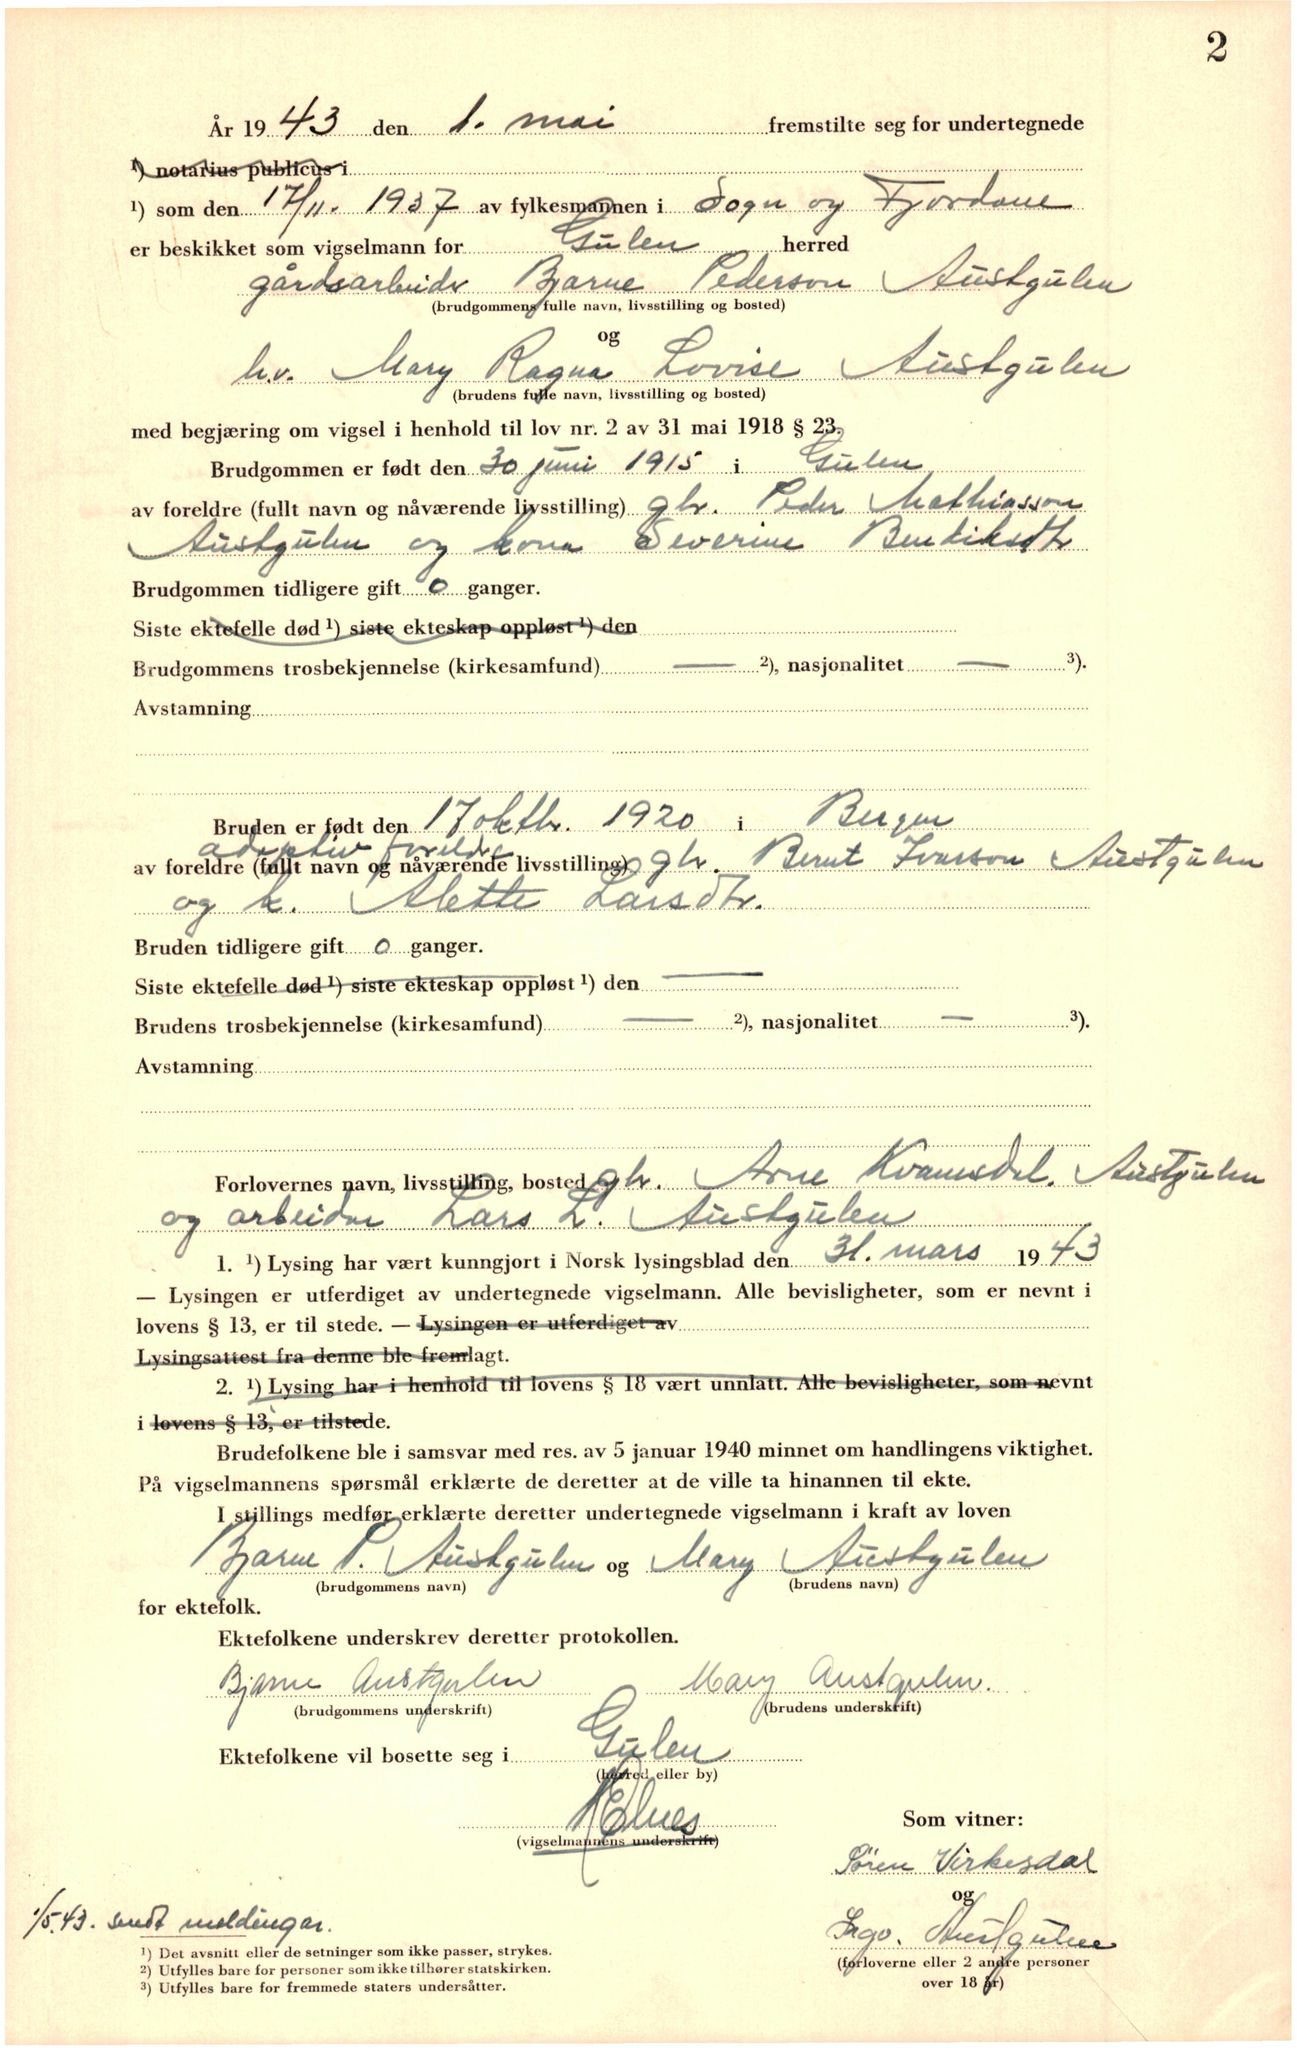 2
År 1943 den 1. mai fremstilte seg for undertegnede
¹) notarius publicus i
¹) som den 17/11. 1937 av fylkesmannen i Sogn og Fjordane
er beskikket som vigselmann for Gulen herred
gårdsarbeidr Bjarne Pederson Austgulen
(brudgommens fulle navn, livsstilling og bosted)
og
h.v. Mary Ragna Lovise Austgulen
(brudens fulle navn, livsstilling og bosted)
med begjæring om vigsel i henhold til lov nr. 2 av 31 mai 1918 § 23.
Brudgommen er født den 30 juni 1915 i Gulen
av foreldre (fullt navn og nåværende livsstilling) gbr. Peder Mathiasson
Austgulen og kona Severine Bendiksdtr
Brudgommen tidligere gift 0 ganger.
Siste ektefelle død ¹) siste ekteskap oppløst ¹) den
Brudgommens trosbekjennelse (kirkesamfund) — ²), nasjonalitet — ³).
Avstamning
Bruden er født den 17 oktbr. 1920 i Bergen
adoptiv foreldre
av foreldre (fullt navn og nåværende livsstilling) gbr. Bernt Ivarson Austgulen
og k. Alette Larsdtr.
Bruden tidligere gift 0 ganger.
Siste ektefelle død ¹) siste ekteskap oppløst ¹) den —
Brudens trosbekjennelse (kirkesamfund) — ²), nasjonalitet — ³).
Avstamning
Forlovernes navn, livsstilling, bosted gbr. Arne Kvamsdal. Austgulen
og arbeidar Lars L. Austgulen
1. ¹) Lysing har vært kunngjort i Norsk lysingsblad den 31. mars 1943
— Lysingen er utferdiget av undertegnede vigselmann. Alle bevisligheter, som er nevnt i
lovens § 13, er til stede. — Lysingen er utferdiget av
Lysingsattest fra denne ble fremlagt.
2. ¹) Lysing har i henhold til lovens § 18 vært unnlatt. Alle bevisligheter, som nevnt
i lovens § 13, er tilstede.
Brudefolkene ble i samsvar med res. av 5 januar 1940 minnet om handlingens viktighet.
På vigselmannens spørsmål erklærte de deretter at de ville ta hinannen til ekte.
I stillings medfør erklærte deretter undertegnede vigselmann i kraft av loven
Bjarne P. Austgulen og Mary Austgulen
(brudgommens navn) (brudens navn)
for ektefolk.
Ektefolkene underskrev deretter protokollen.
Bjarne Austgulen Mary Austgulen.
(brudgommens underskrift) (brudens underskrift)
Ektefolkene vil bosette seg i Gulen
(herred eller by)
Som vitner:
(vigselmannens underskrift)
Søren Virkesdal
og
Austgulen
(forloverne eller 2 andre personer
over 18 år)
1/5.43. sendt meldingar.
¹) Det avsnitt eller de setninger som ikke passer, strykes.
²) Utfylles bare for personer som ikke tilhører statskirken.
³) Utfylles bare for fremmede staters undersåtter.